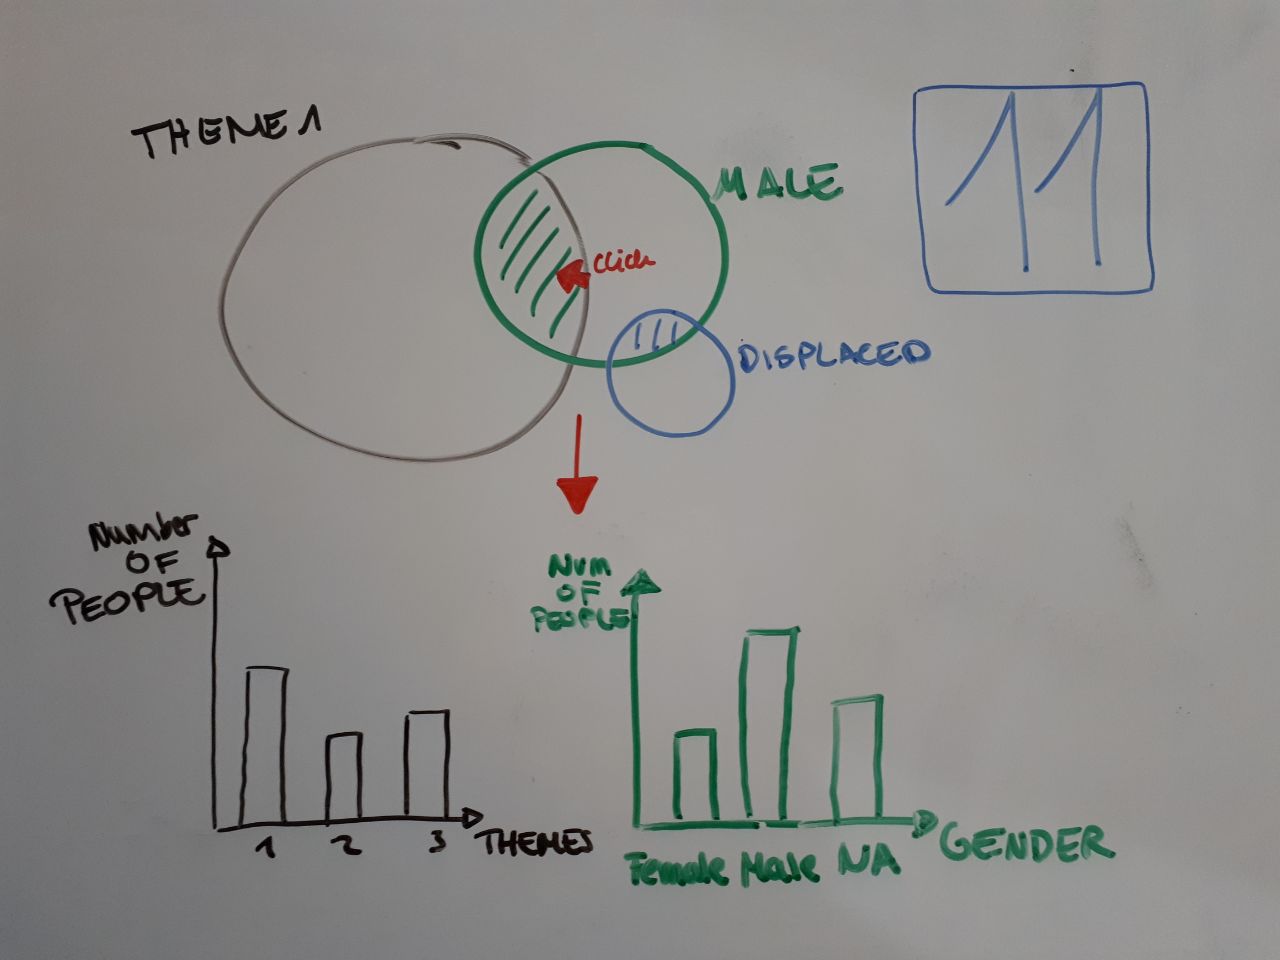 THEME 1
MALE
11
click
DISPLACED
Number
OF
PEOPLE
1 2 3 THEMES
NUM
OF
PEOPLE
Female Male NA GENDER